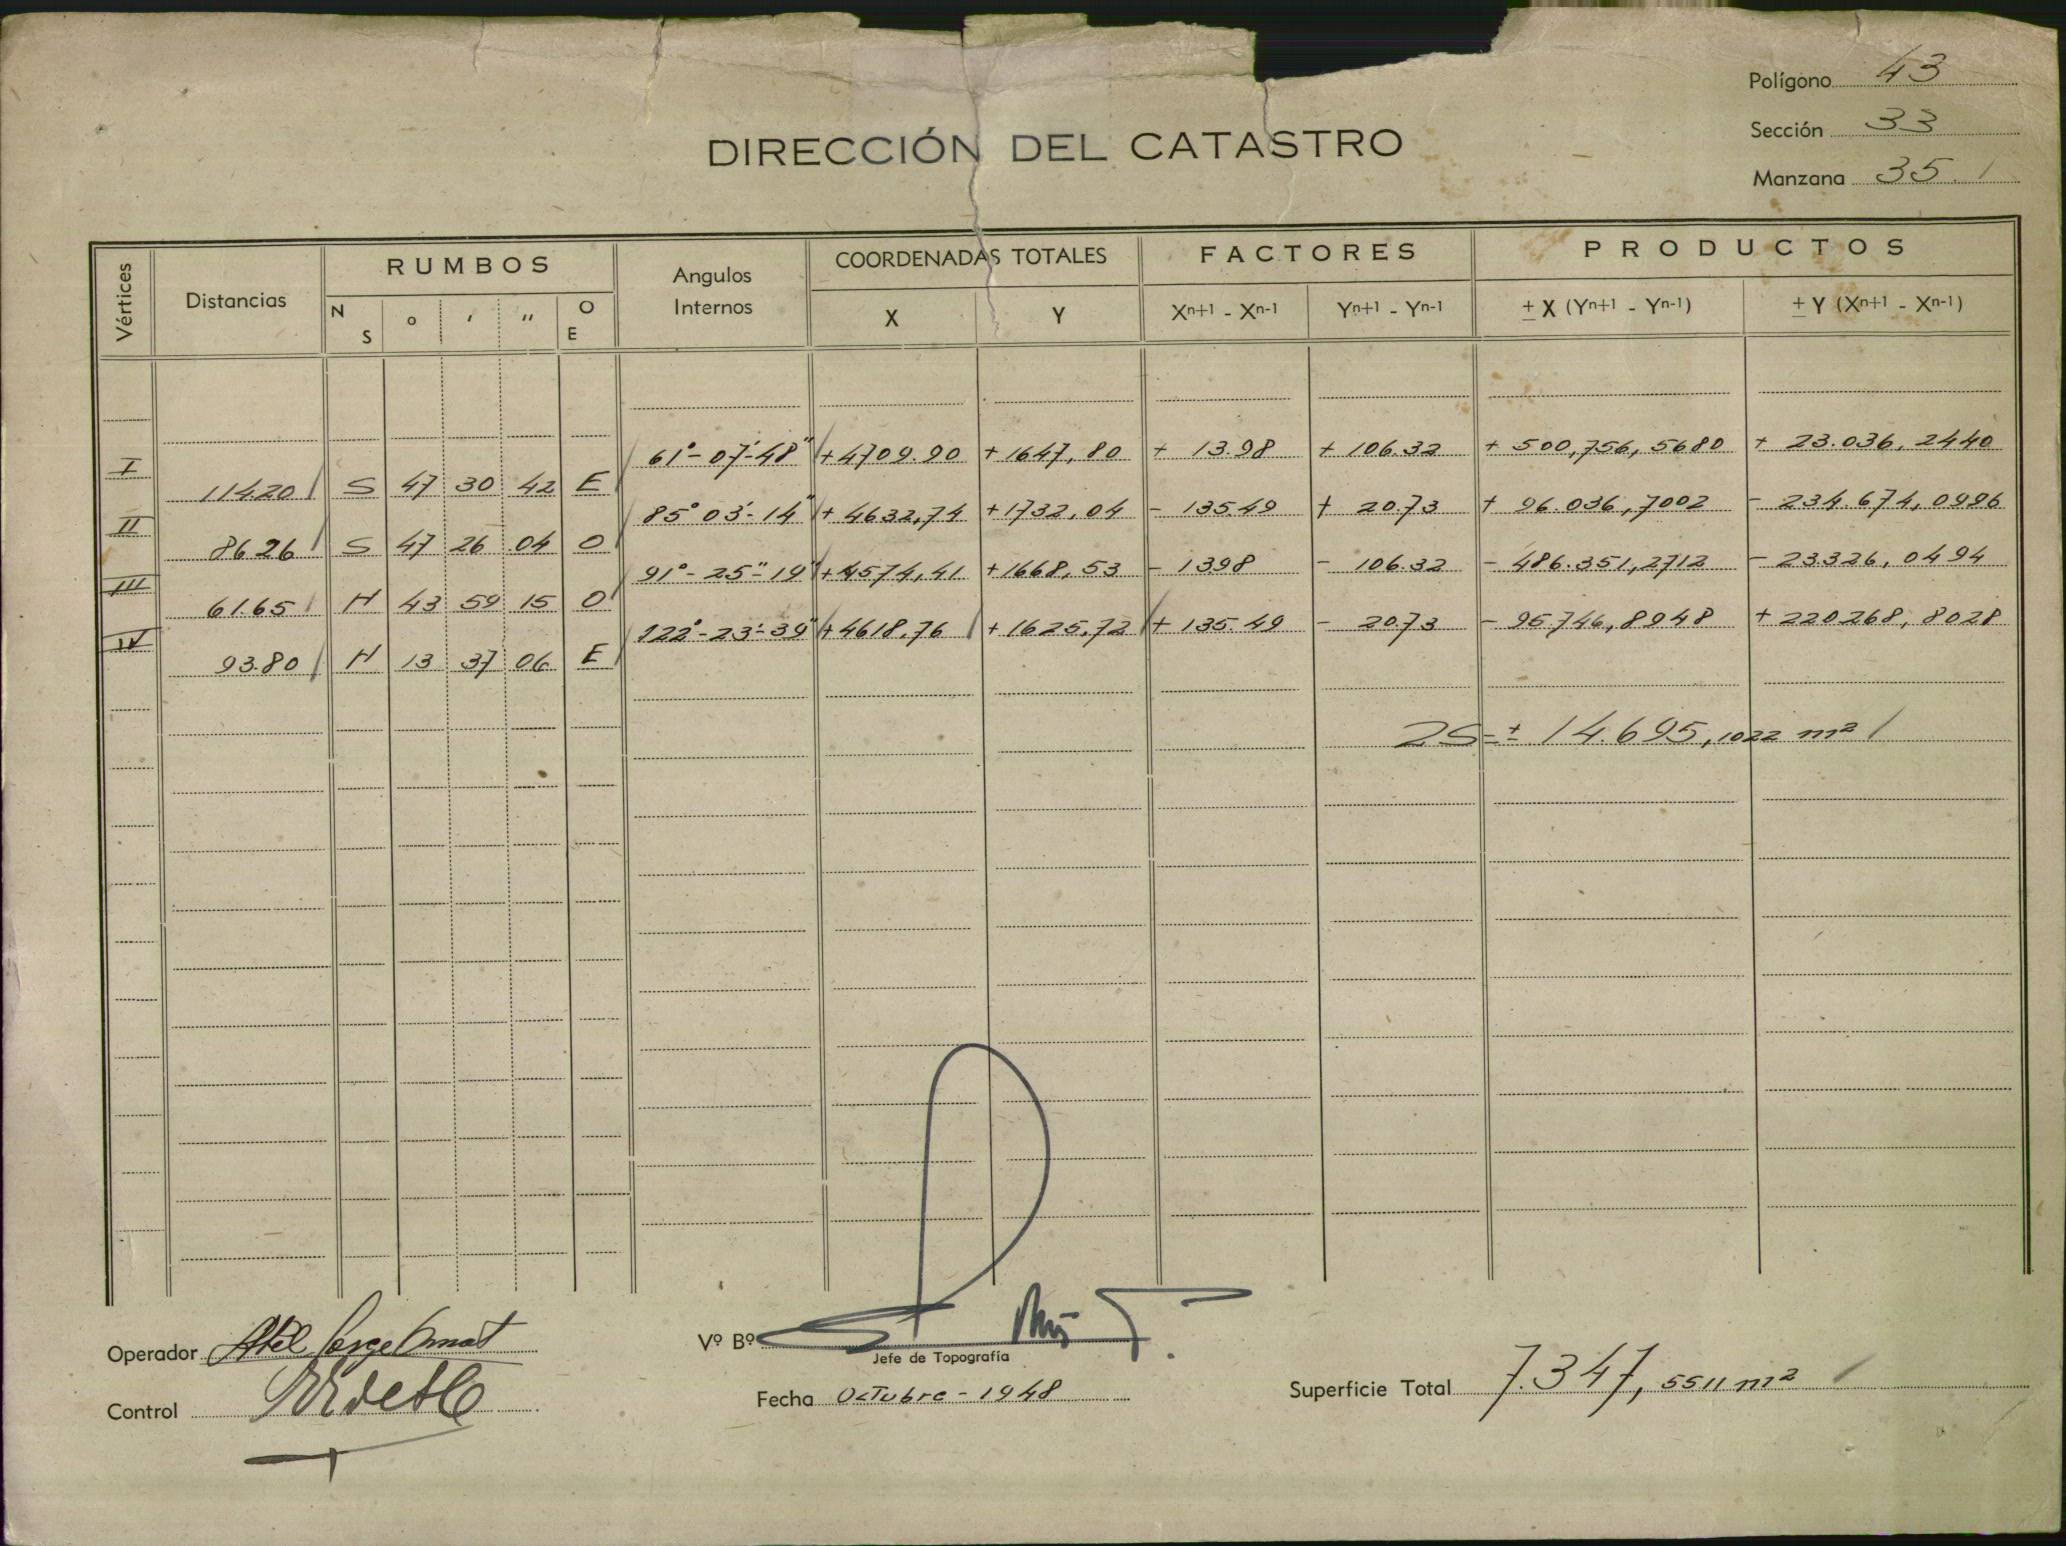 Polígono 43
Sección 33
Manzana 35.
DIRECCIÓN DEL CATASTRO
Vértices Distancias RUMBOS Angulos Internos COORDENADAS TOTALES FACTORES PRODUCTOS
N S ° ' " O E X Y Xn+1 - Xn-1 Yn+1 - Yn-1 ± X (Yn+1 - Yn-1) ± Y (Xn+1 - Xn-1)
I 61°-07'-48" +4709.90 +1647,80 + 13.98 + 106.32 + 500,756,5680 + 23.036,2440
114.20 S 47 30 42 E
II 85° 03'-14" +4632,74 +1732,04 - 135.49 + 20.73 + 96.036,7002 - 234.674,0996
86.26 S 47 26 04 O
III 91°-25"-19" +4574,41 +1668,53 - 13.98 - 106.32 - 486.351,2712 - 23.326,0494
61.65 N 43 59 15 O
IV 122°-23'-39" +4618,76 +1625,72 + 135.49 - 20.73 - 95.746,8948 + 220.268,8028
93.80 N 13 37 06 E
2S=± 14.695,1022 m²
Operador
Control
Vº Bº
Jefe de Topografía
Fecha Octubre - 1948
Superficie Total 7.347,5511 m²